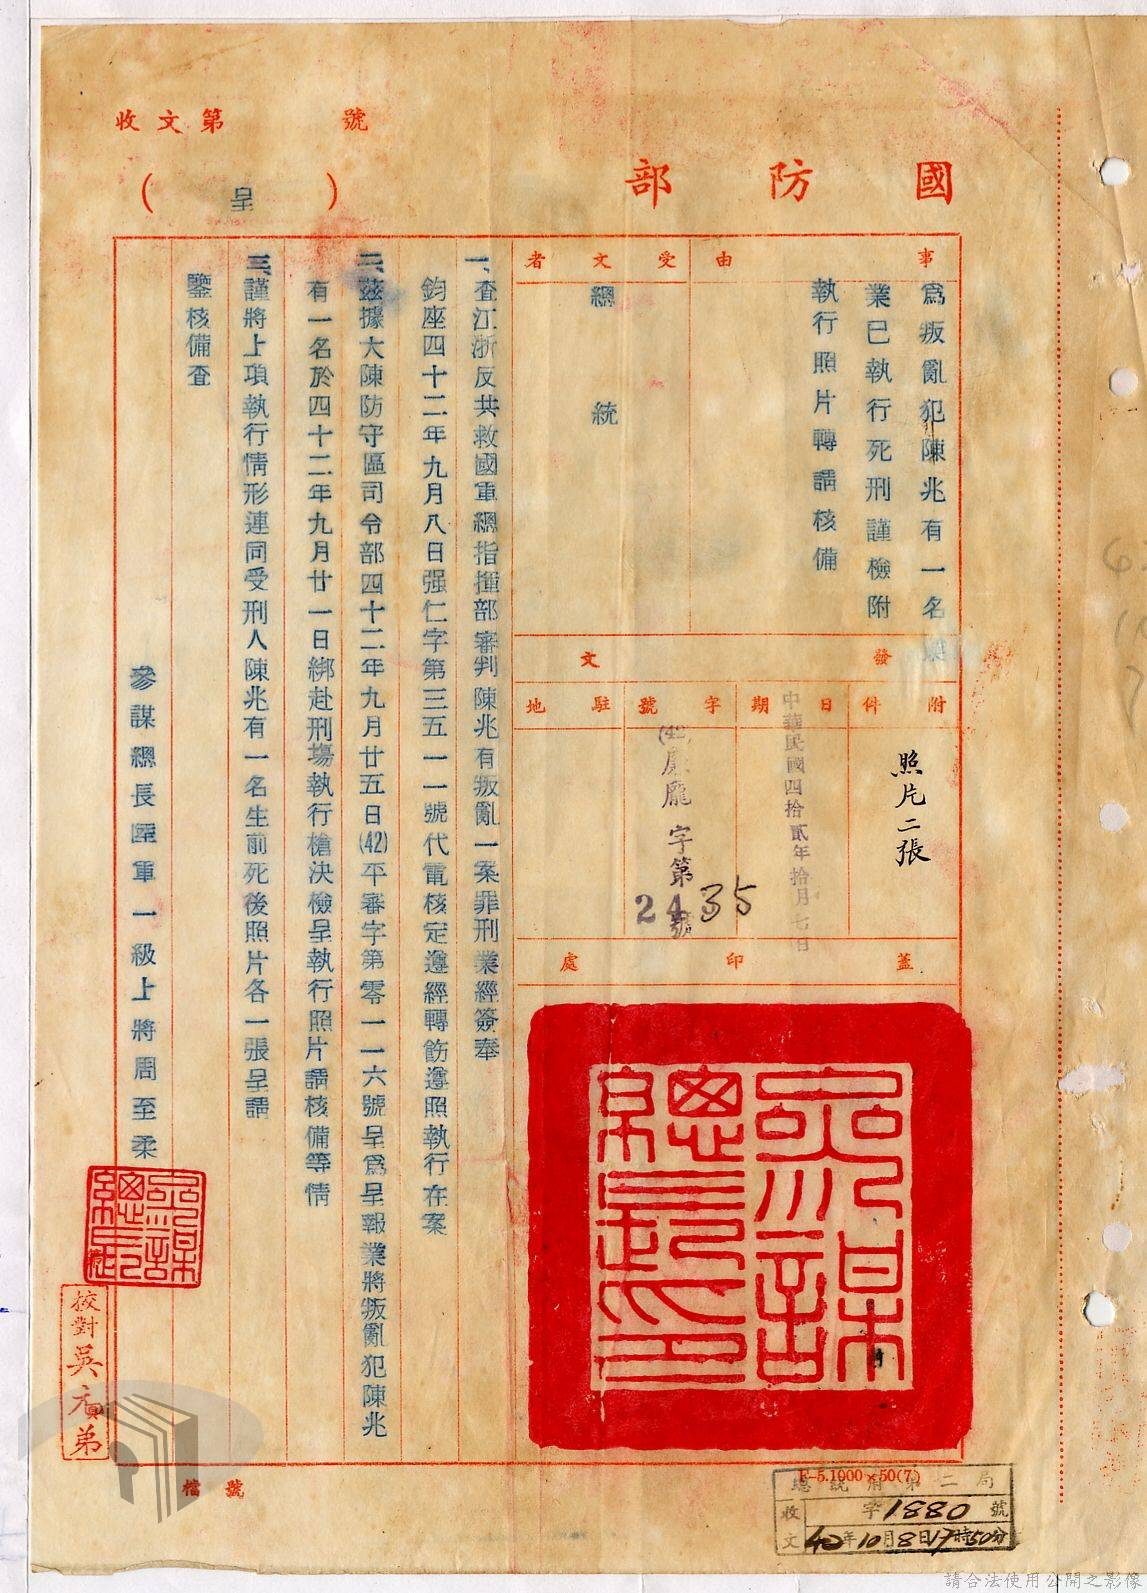 收文第　號
國防部
（呈）
事由
為叛亂犯陳兆有一名業
業已執行死刑謹檢附
執行照片轉請核備
受文者
總統
發文
附件
照片二張
日期
中華民國四拾貳年拾月七日
字號
(42)　龐字第2435號
駐地
蓋印處
參謀總長印
一、查江浙反共救國軍總指揮部審判陳兆有叛亂一案罪刑業經簽奉
鈞座四十二年九月八日强仁字第三五一一號代電核定遵經轉飭遵照執行在案
二、茲據大陳防守區司令部四十二年九月廿五日(42)平審字第零一一六號呈為呈報業將叛亂犯陳兆
有一名於四十二年九月廿一日綁赴刑場執行槍決檢呈執行照片請核備等情
三、謹將上項執行情形連同受刑人陳兆有一名生前死後照片各一張呈請
鑒核備查
參謀總長陸軍一級上將周至柔
校對吳元弟
檔號
F-5.1000×50(7)
總統府第二局
收文　字1880號
42年10月8日17時50分
請合法使用公開之影像